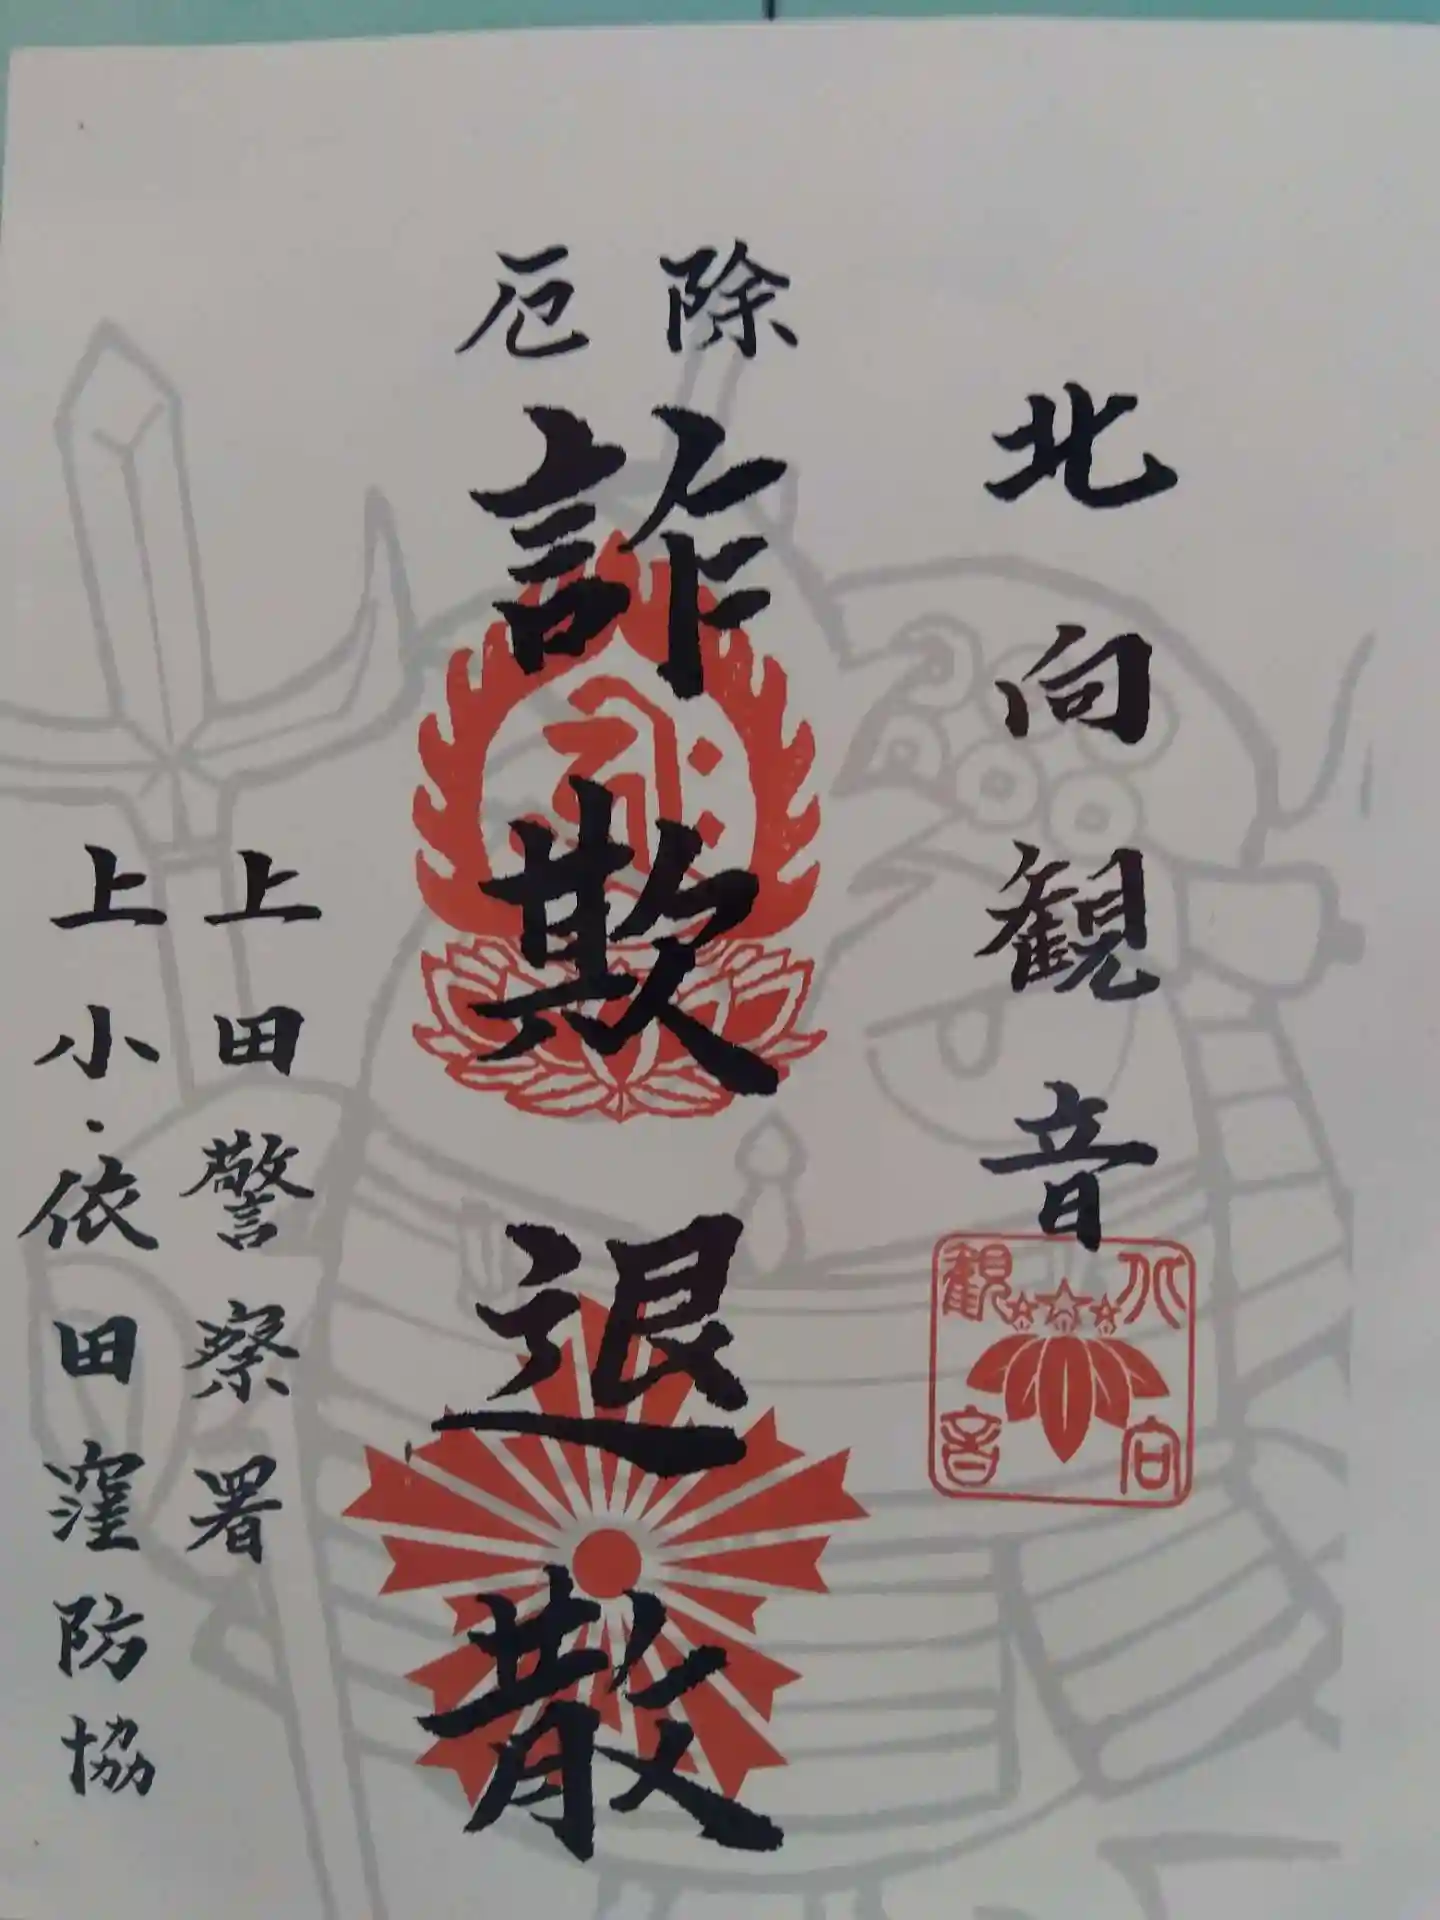 北向観音
北向
観音
除厄
詐欺退散
上田警察署
上小・依田窪防協